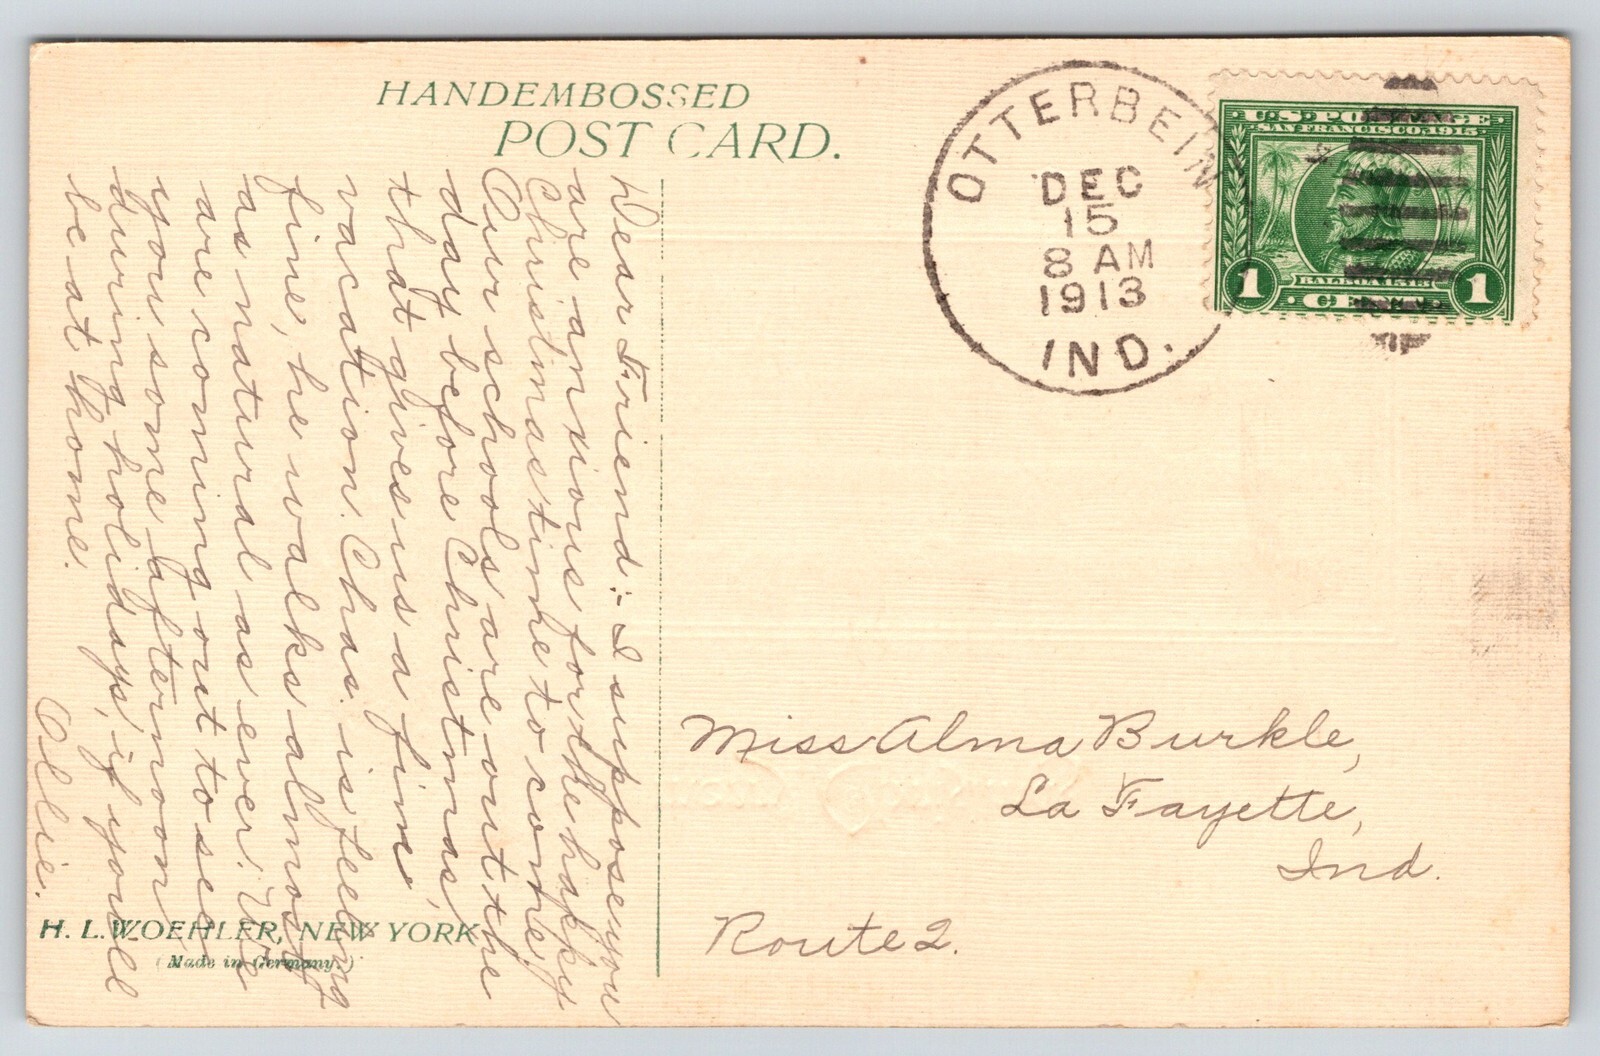 HANDEMBOSSED
POST CARD.
OTTERBEIN
DEC
15
8 AM
1913
IND.
U.S. POSTAGE
SAN FRANCISCO, 1915
1
BALBOA 1513
1
CENT
Dear Friend:- I suppose you
are anxious for the happy
Christmas time to come,
Our schools are out the
day before Christmas,
that gives us a fine
vacation. Chas. is feeling
fine, he walks almost
as natural as ever. We
are coming out to see
you some afternoon
during holidays, if you ll
be at home.
Ollie.
Miss Alma Burkle,
La Fayette,
Ind.
Route 2.
H. L. WOEHLER, NEW YORK
(Made in Germany.)